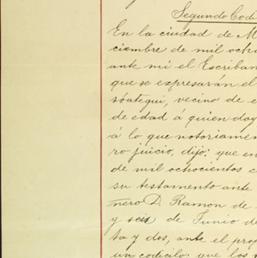 Segundo Codi
En la ciudad de M
ciembre de mil ocho
ante mi el Escriban
que se expresarán el
sóategui, vecino de e
de edad á quien doy
á lo que notoriamen
ro juicio, dijo; que en
de mil ochocientos c
su testamento ante
nero D. Ramon de
y seis de Junio de
ta y dos, ante el prop
un codicilo que los